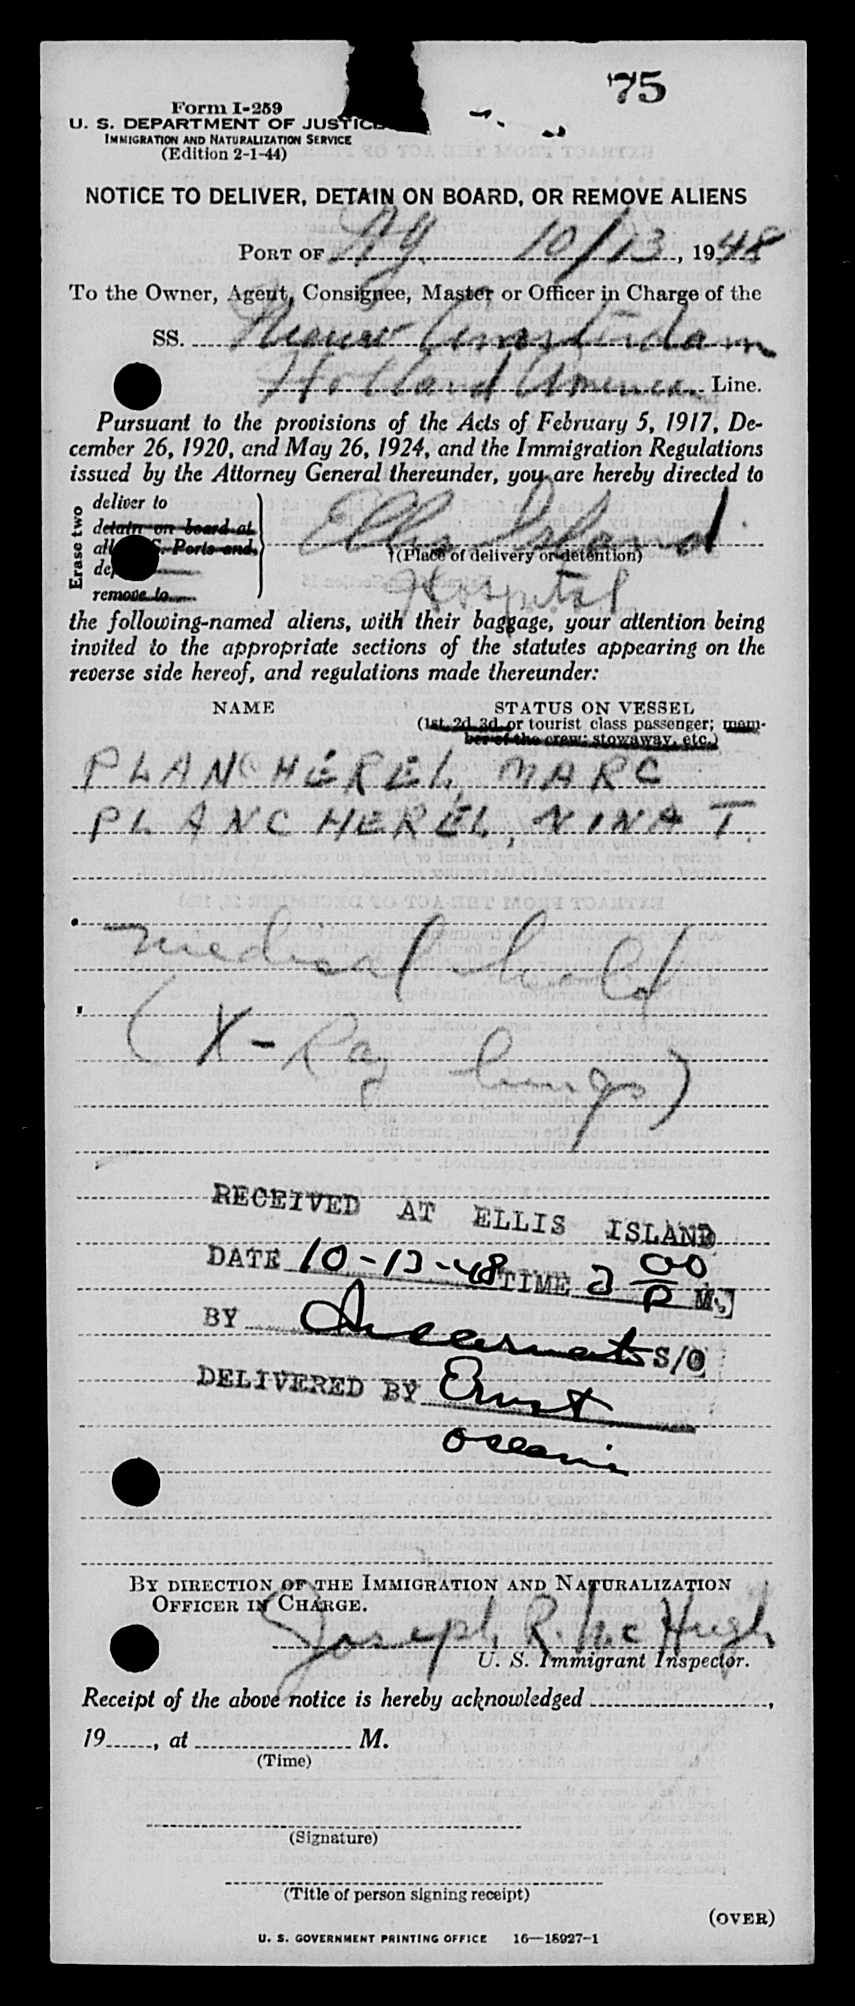 75
Form I-259
U. S. DEPARTMENT OF JUSTICE
IMMIGRATION AND NATURALIZATION SERVICE
(Edition 2-1-44)
NOTICE TO DELIVER, DETAIN ON BOARD, OR REMOVE ALIENS
PORT OF NY. 10/13, 1948
To the Owner, Agent, Consignee, Master or Officer in Charge of the
SS. Nieuw Amsterdam
Holland America Line.
Pursuant to the provisions of the Acts of February 5, 1917, De-
cember 26, 1920, and May 26, 1924, and the Immigration Regulations
issued by the Attorney General thereunder, you are hereby directed to
Erase two
deliver to
detain on board at
all U. S. Ports and
remove to
Ellis Island
(Place of delivery or detention)
Hospital
the following-named aliens, with their baggage, your attention being
invited to the appropriate sections of the statutes appearing on the
reverse side hereof, and regulations made thereunder:
NAME STATUS ON VESSEL
(1st, 2d, 3d, or tourist class passenger; mem-
ber of the crew; stowaway, etc.)
PLANCHEREL, MARC
PLANCHEREL, NINA T.
medical hold
(X-Ray lungs)
RECEIVED AT ELLIS ISLAND
DATE 10-13-48 TIME 2 00 P M.
BY S/O
DELIVERED BY Ernst
Oceanic
BY DIRECTION OF THE IMMIGRATION AND NATURALIZATION
OFFICER IN CHARGE.
Joseph R. McHugh
U. S. Immigrant Inspector.
Receipt of the above notice is hereby acknowledged ,
19 , at M.
(Time)
(Signature)
(Title of person signing receipt)
(OVER)
U. S. GOVERNMENT PRINTING OFFICE 16—18927-1